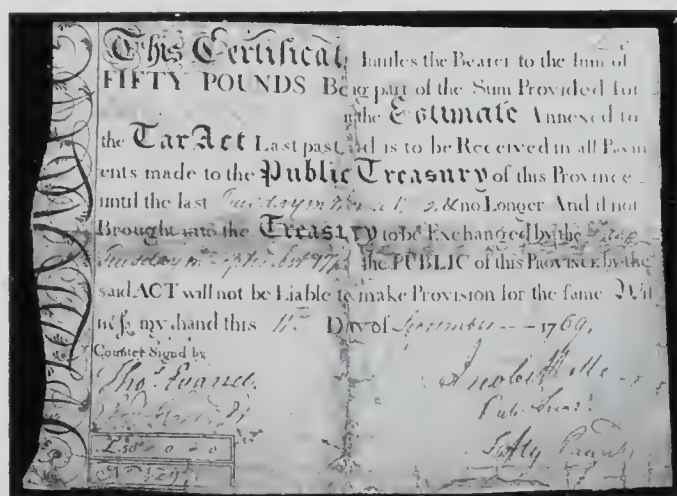 This Certificat intitles the Bearer to the sum of
FIFTY POUNDS Being part of the Sum Provided for
in the Estimate Annexed to
the Tax Act Last past and is to be Received in all Paym
ents made to the Public Treasury of this Province
until the last Tuesday in & no Longer And if not
Brought into the Treasury to be Exchanged by the
Tuesday in September the PUBLIC of this PROVINCE by the
said ACT will not be Liable to make Provision for the same Wit
ness my hand this Day of 1769.
Counter Signed by
Tho.s Evance.
Pub. Treas.r
Fifty Pounds